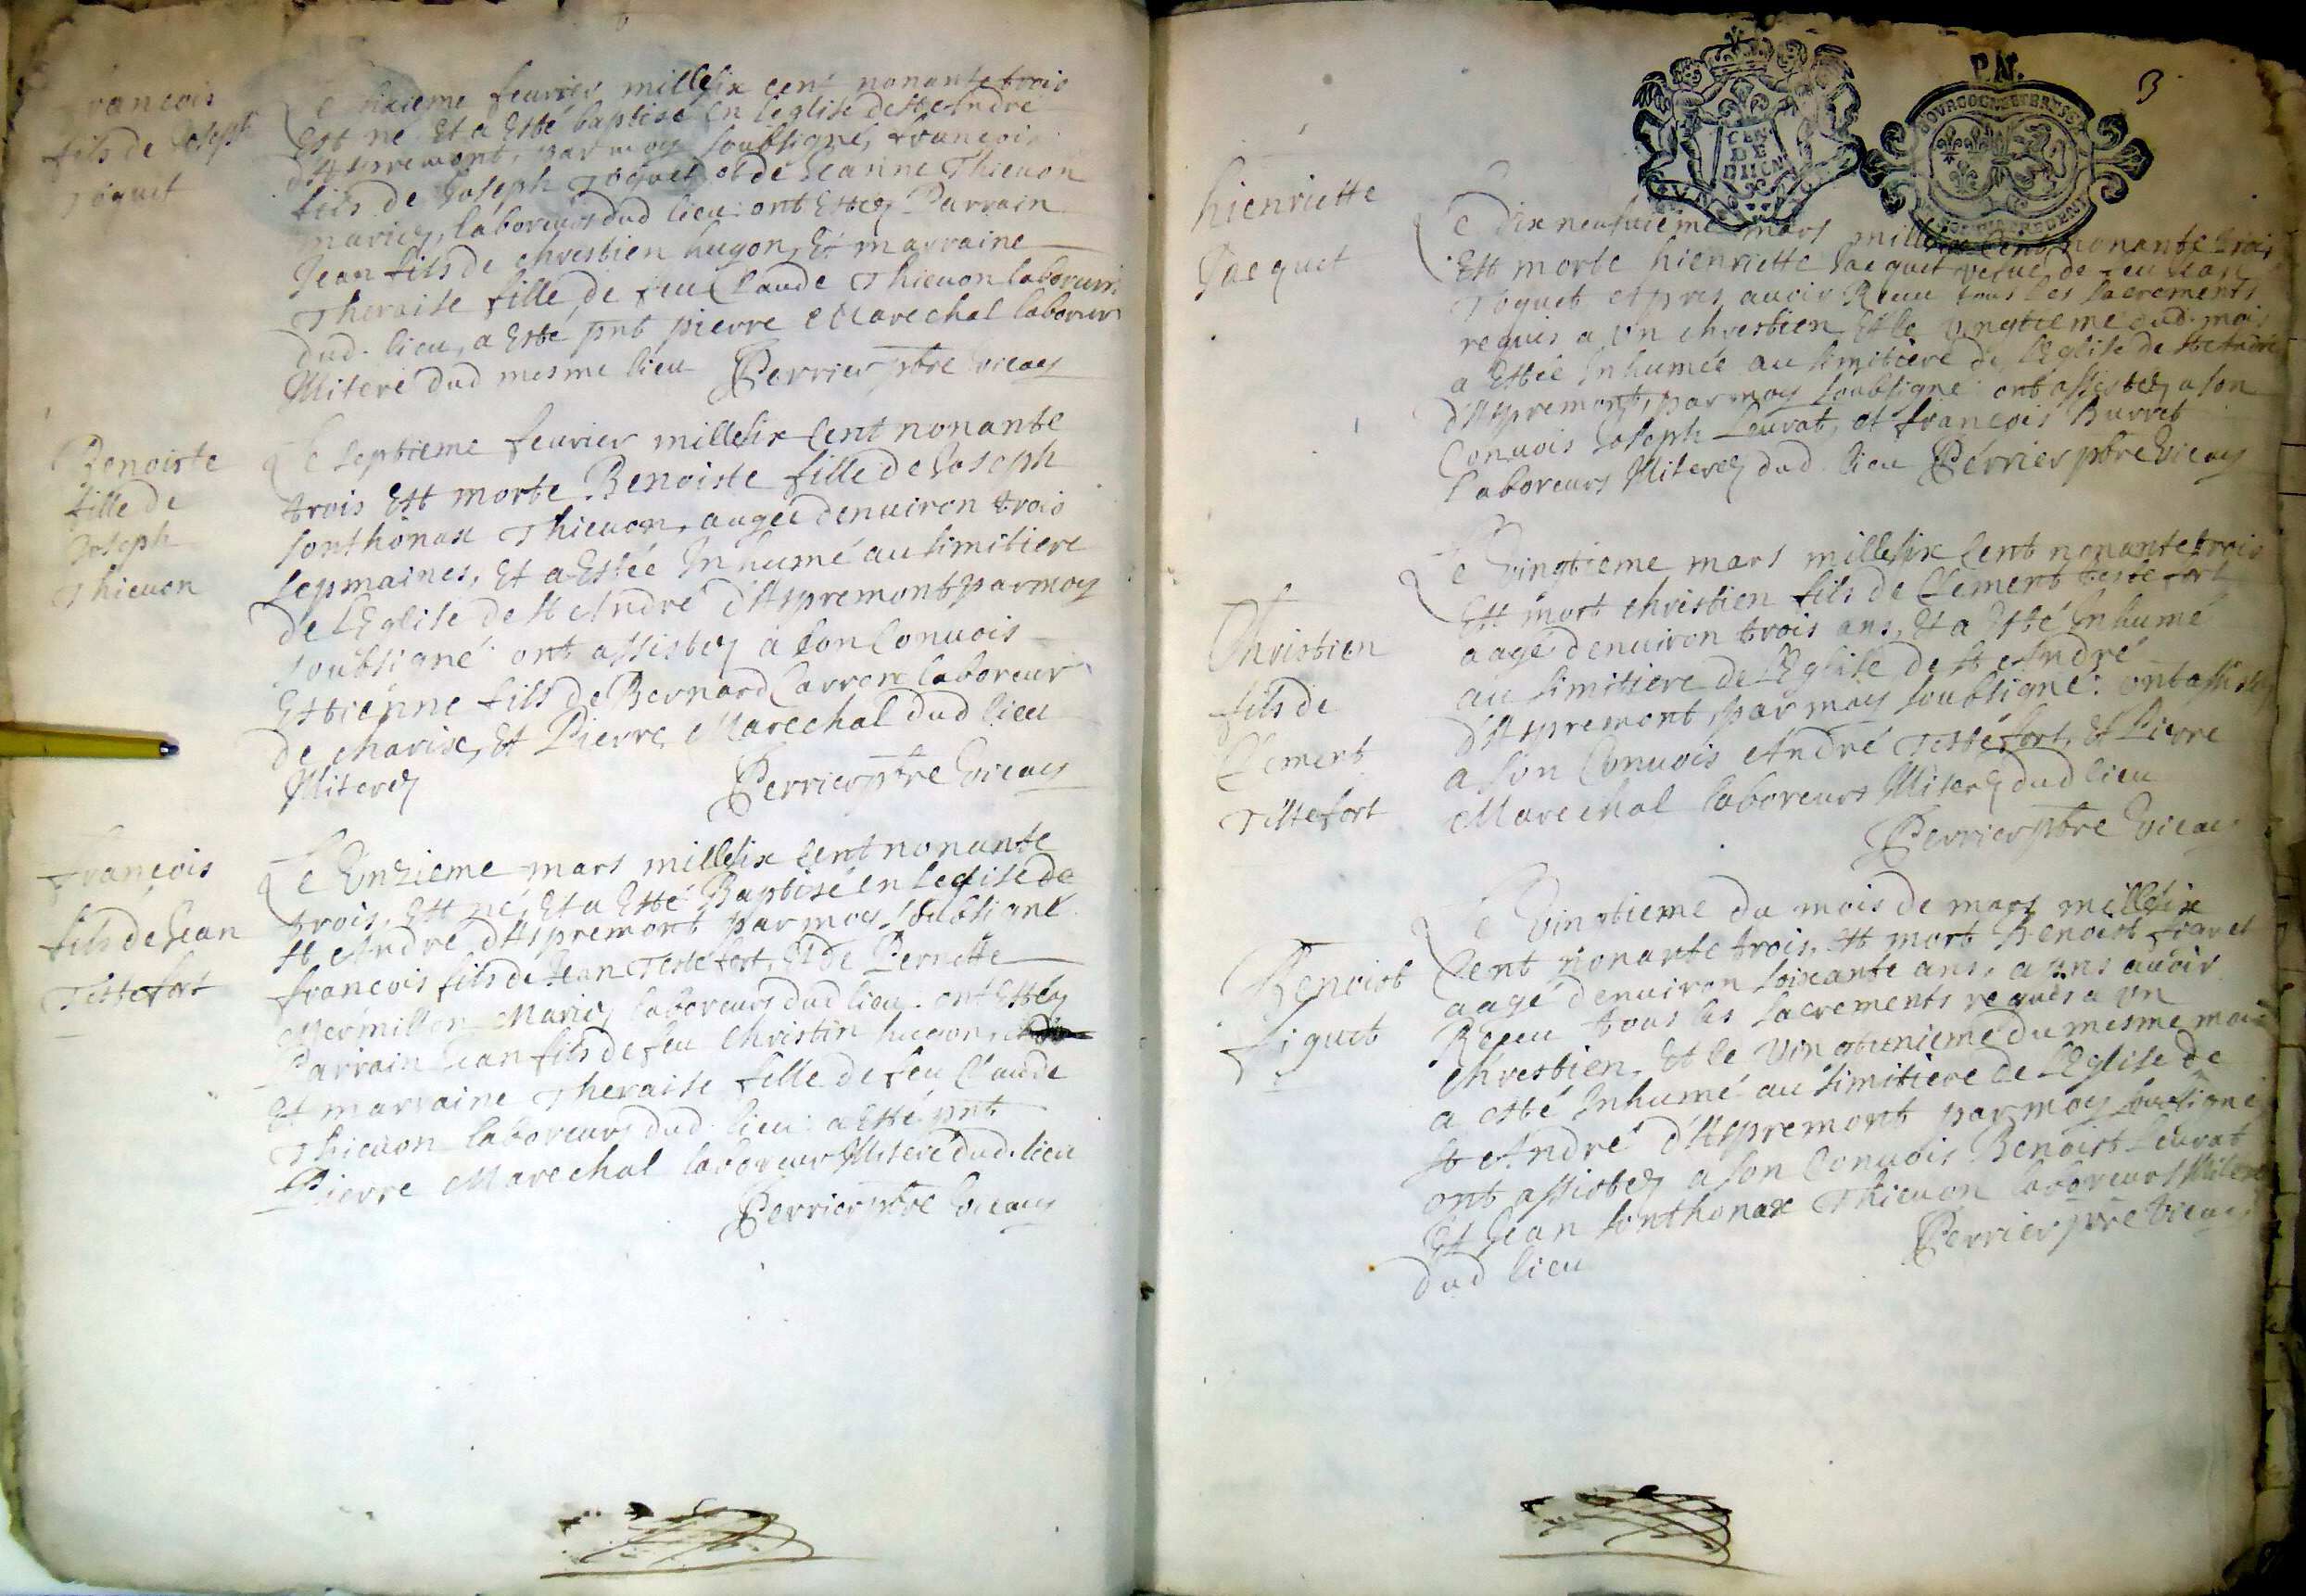 francois
fils de Joseph
Toquet
Le sixieme feurier mille six cent nonante trois
Est né Et a Esté baptisé En l'eglise de St Andre
d'Aspremont, par moy soubsigné, francois
fils de Joseph Toquet et de Jeanne Thieuon
mariez, laboreurs dud lieu: ont Estez Parrain
Jean fils de chrestien hugon, Et marraine
Theraise fille de feu Claude Thieuon laboreur
dud. lieu, a Esté pnt pierre Marechal laboreur
Miteré dud mesme lieu Perrier ptre vicay
Benoiste
fille de
Joseph
Thieuon
Le septieme feurier mille six Cent nonante
trois Est morte Benoiste fille de Joseph
Sonthonax Thieuon, augée denuiron trois
sepmaines, Et a Estée Inhumé au simitiere
de l'Eglise de St Andre d'Aspremont par moy
soubsigné: ont assistez a son Conuois
Estienne fils de Bernard Carron laboreur
de charix, Et Pierre Marechal dud lieu
Miterez Perrier ptre vicay
François
fils de Jean
Testefort
Le Vnzieme mars mille six Cent nonante
trois, Est né, Et a Esté Baptisé en leglise de
St Andre d'Aspremont par moy soubsigné
francois fils de Jean Testefort, Et de Pernette
Mermillon Mariez laboreurs dud lieu. ont Estez
Parrain Jean fils de feu Christin hugon,
Et marraine Theraise fille de feu Claude
Thieuon laboreurs dud. lieu: a Esté pnt
Pierre Marechal laboreur Miteré dud. lieu
Perrier ptre vicay
P.N.
3
CEN
DE
DIION
BOVRGOGNE ET BRESSE
hienriette
Jacquet
Le dix neufuieme mars mille six Cent nonante trois
Est morte hienriette Jacquet vefue de feu Jean
Toquet Apres auoir Receu tous les sacrements
requis a Vn chrestien Et le vingtieme dud. mois
a Estée Inhumée au simitiere de l'Eglise de St Andre
d'Aspremont, par moy soubsigné: ont assistez a son
Conuois Joseph Leurat, et francois Burret
laboreurs Miterez dud. lieu Perrier ptre vicay
Christien
fils de
Clement
Testefort
Le Vingtieme mars mille six Cent nonante trois
Est mort christien fils de Clement testefort
aagé denuiron trois ans, Et a Esté Inhumé
au simitiere de l'Eglise de St Andre
d'Aspremont, par moy soubsigné: ont assistez
a son Conuois André Testefort, Et Pierre
Marechal laboreurs Miterez dud lieu
Perrier ptre vicay
Benoist
figuet
Le Vingtieme du mois de mars mille six
Cent nonante trois, Est mort Benoist
aagé denuiron soixante ans, apres auoir
Receu tous les sacrements requis a vn
chrestien. Et le Vingtunieme du mesme mois
a esté Inhumé au simitiere de l'Eglise de
St André d'Aspremont par moy soubsigné
ont assistez a son Conuois Benoist Leurat
Et Jean Sonthonax Thieuon laboreurs Miterez
dud lieu Perrier ptre vicay